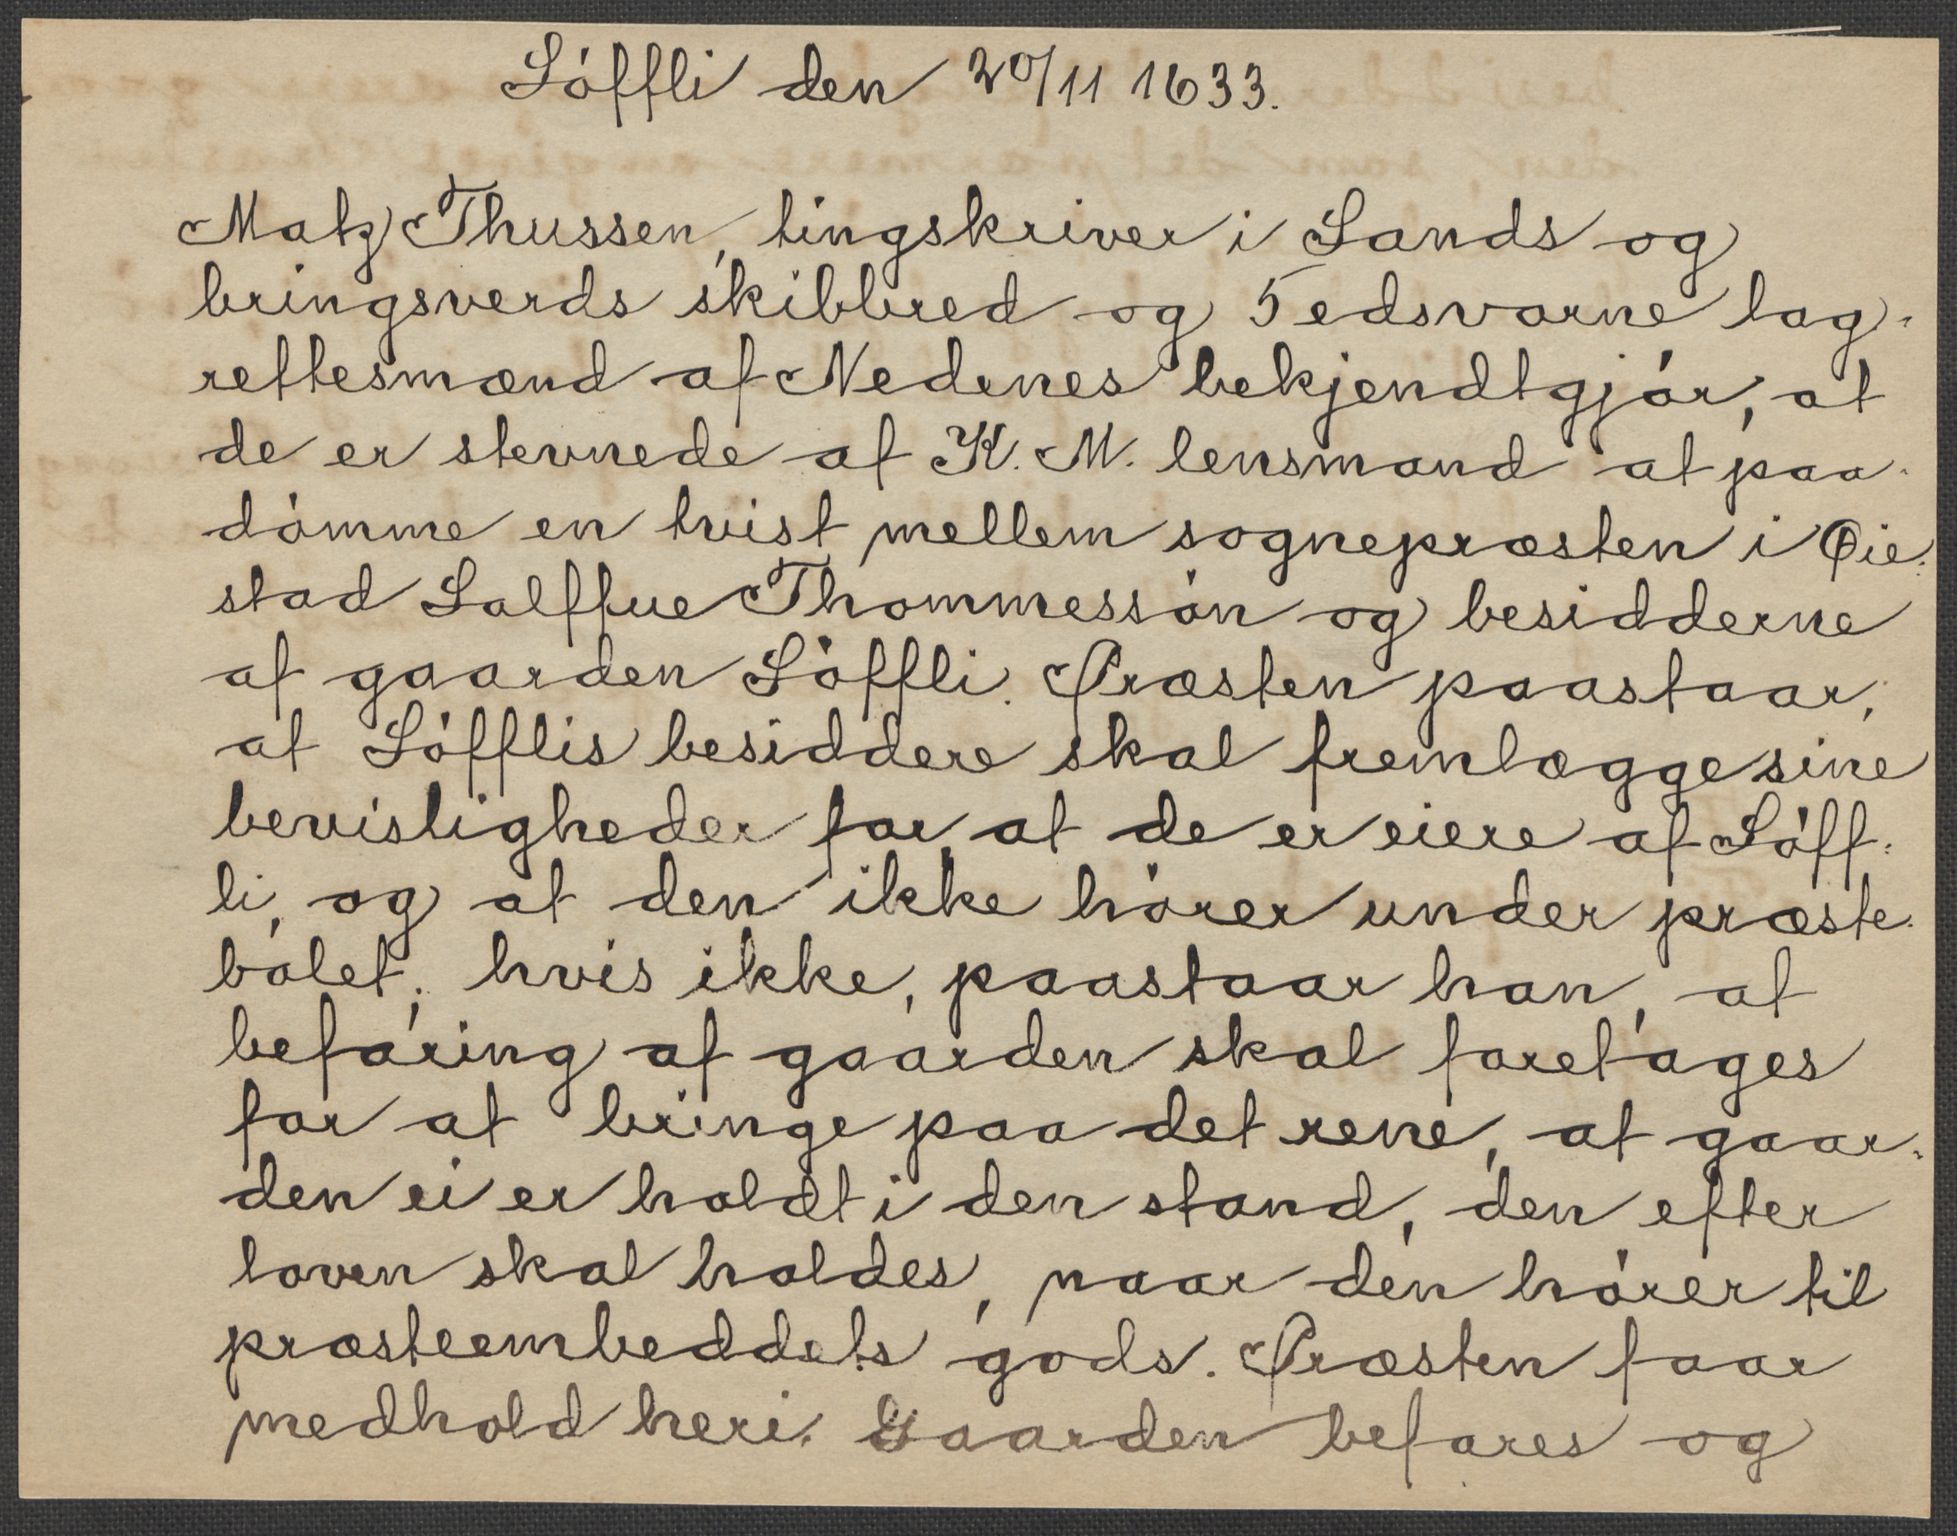 Löffli den 20/11 1633.
Matz Thussen, tingskriver i Sands og
bringsverds skibbred og 5 edsvorne lag-
rettesmænd af Nedenes bekjendtgjór, at
de er stevnede af K. M. lensmand at paa-
dómme en tvist mellem sognepræsten i Øie-
stad Salffue Thommessón og besidderne
af gaarden Lóffli. Præsten paastaar,
at Lófflis besiddere skal fremlægge sine
bevisligheder for, at de er eiere af Lóff-
li, og at den ikke hórer under præste-
bolet; hvis ikke, paastaar han, at
befaring af gaarden skal foretages
for at bringe paa det rene, at gaar-
den ei er holdt i den stand, den efter
loven skal holdes, naar den hórer til
præsteembeddets gods. Præsten faar
medhold heri. Gaarden befares og